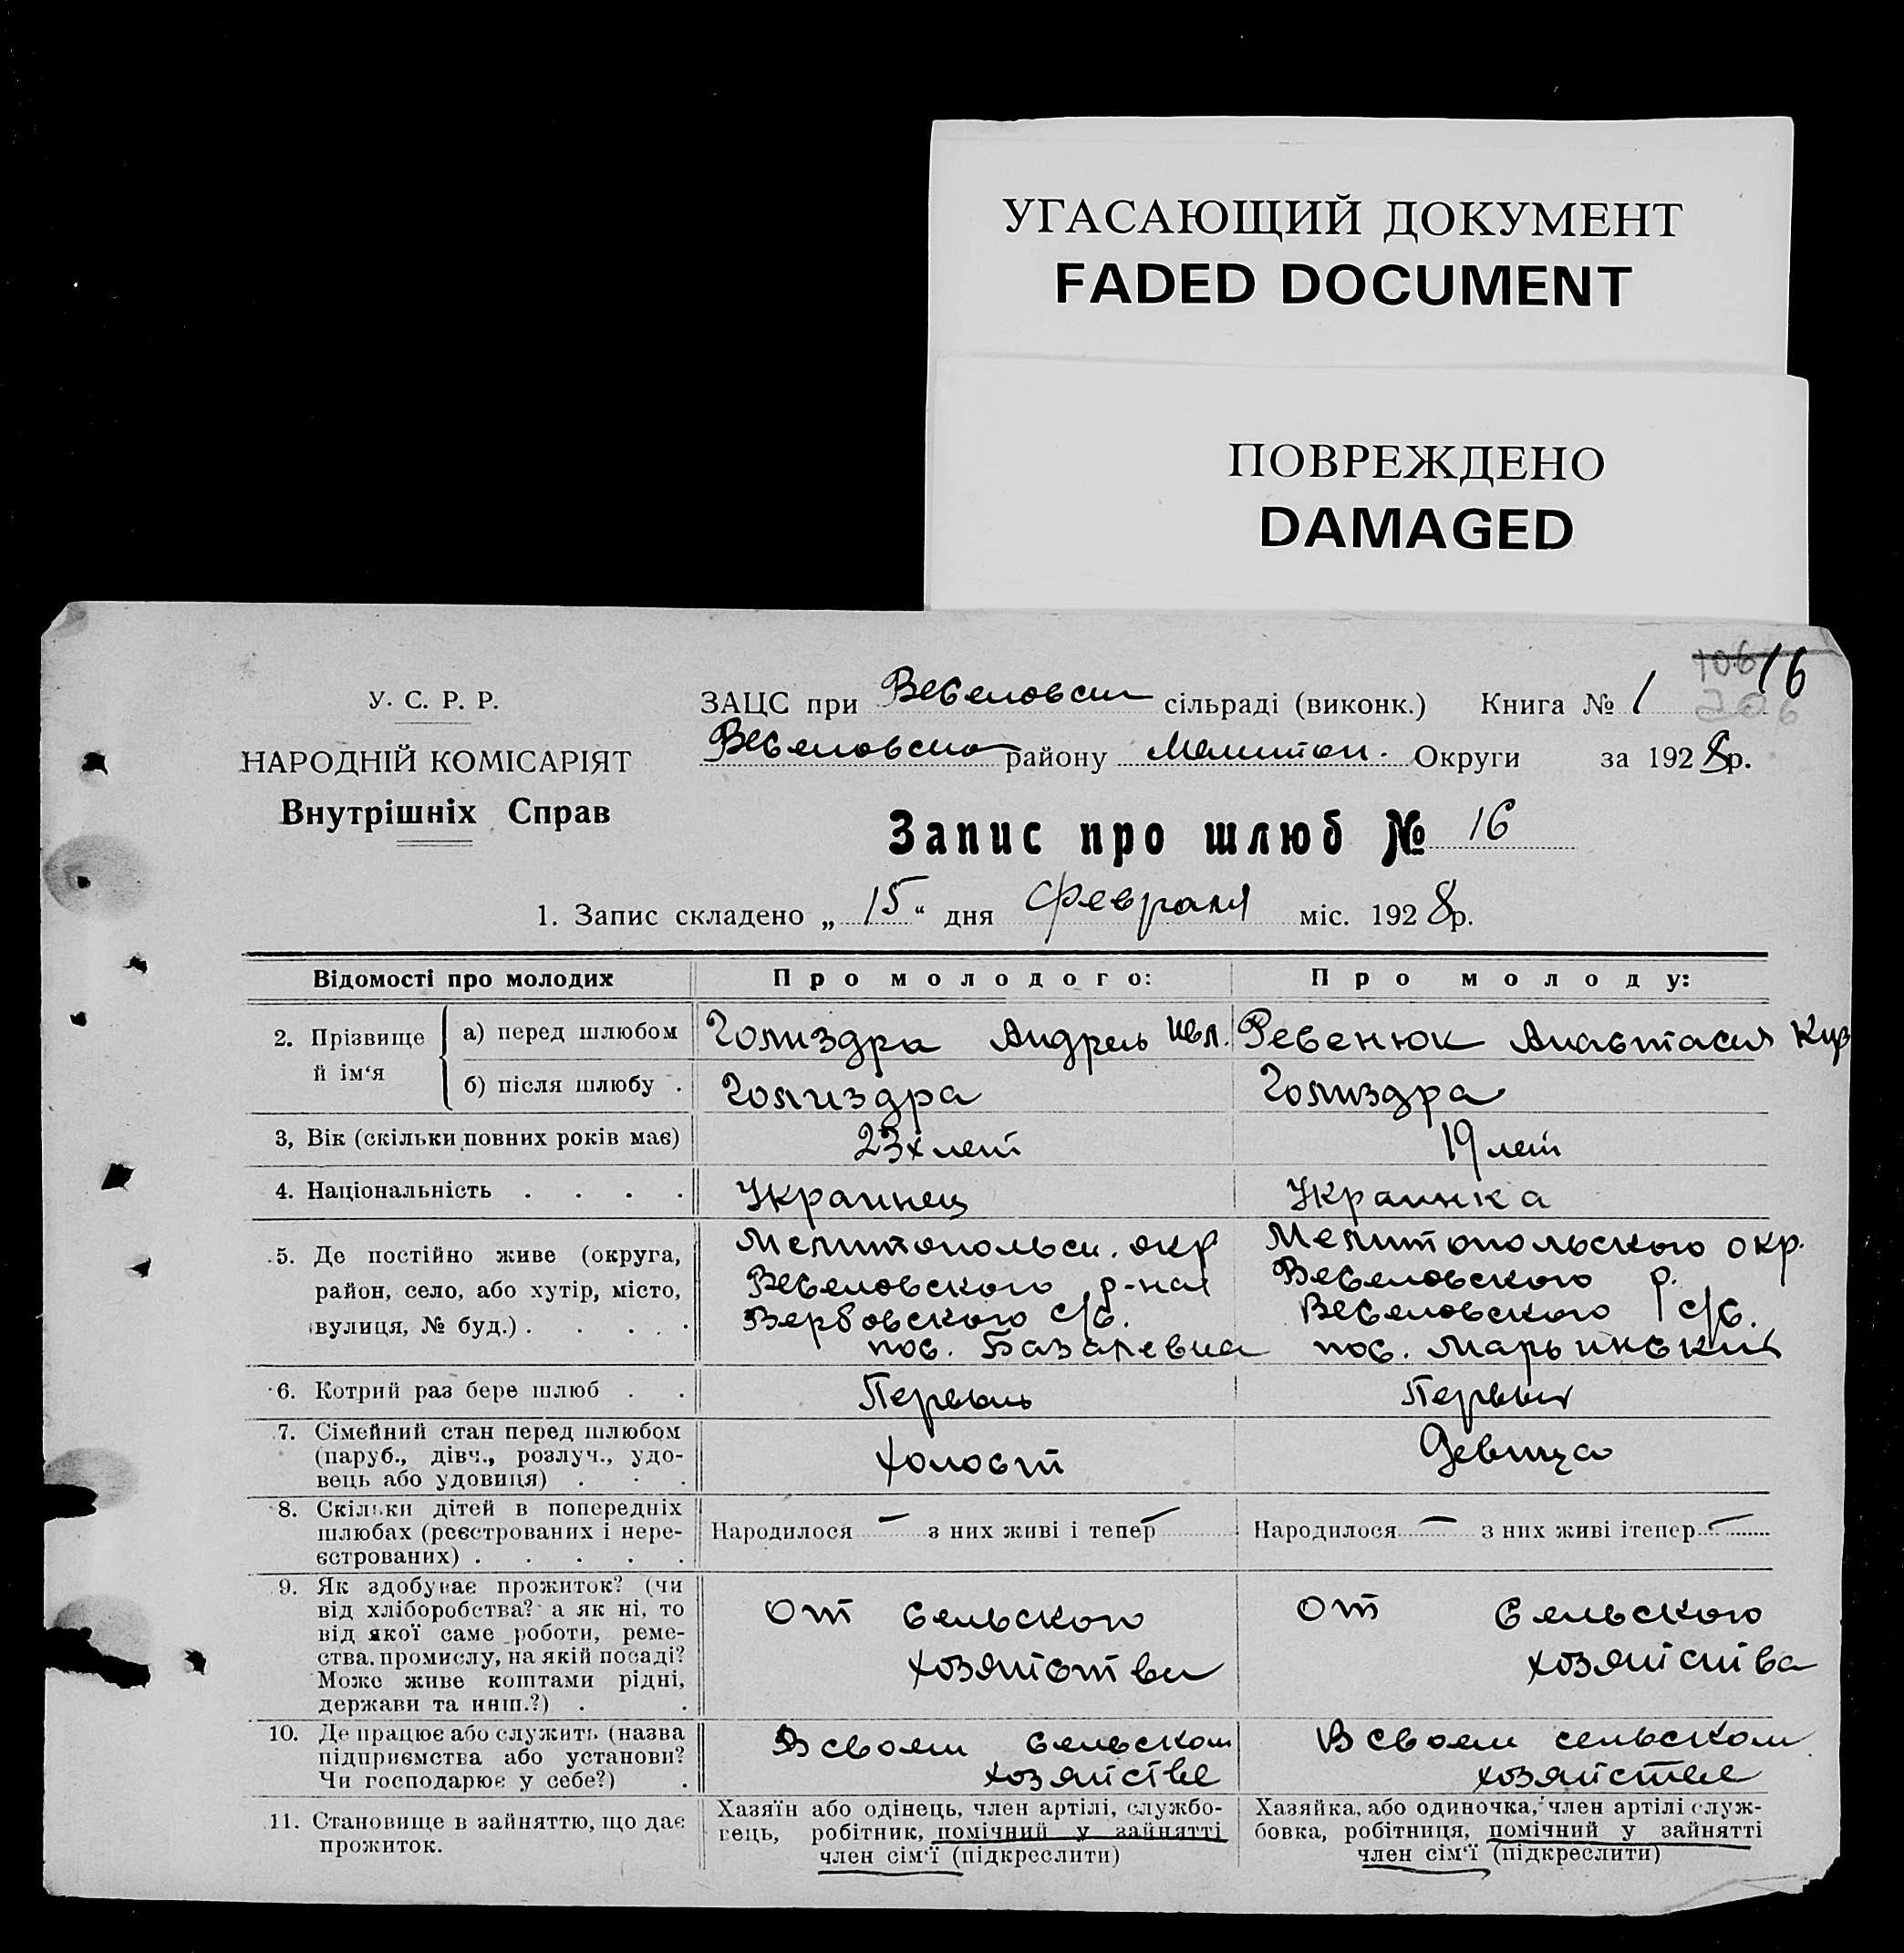 УГАСАЮЩИЙ ДОКУМЕНТ
FADED DOCUMENT
ПОВРЕЖДЕНО
DAMAGED
106 16
206
У. С. Р. Р.
НАРОДНІЙ КОМІСАРІЯТ
Внутрішніх Справ
ЗАЦС при Веселовск сільраді (виконк.) Книга № 1
Веселовско району Мелитоп. Округи за 1928 р.
Запис про шлюб № 16
1. Запис складено „15“ дня февраля міс. 1928 р.
Відомості про молодих Про молодого: Про молоду:
2. Прізвище й ім‘я
а) перед шлюбом Голиздра Андрей Ивл. Ревенюк Анастасия Куз
б) після шлюбу . Голиздра Голиздра
3, Вік (скільки повних років має) 23х лет 19 лет
4. Національність . . . . Украинец Украинка
5. Де постійно живе (округа,
район, село, або хутір, місто,
вулиця, № буд.) . . . . .
Мелитопольск. окр
Веселовского р-на
Вербовского с/с.
пос. Базалевка
Мелитопольского окр.
Веселовского р.
Веселовского с/с.
пос. Марьинский
6. Котрий раз бере шлюб . . Первый Первый
7. Сімейний стан перед шлюбом
(паруб., дівч., розлуч., удо-
вець або удовиця) . . .
Холост Девица
8. Скільки дітей в попередніх
шлюбах (реєстрованих і нере-
єстрованих) . . . . .
Народилося — з них живі і тепер —
Народилося — з них живі ітепер —
9. Як здобуває прожиток? (чи
від хліборобства? а як ні, то
від якої саме роботи, реме-
ства, промислу, на якій посаді?
Може живе коштами рідні,
держави та инш.?) . .
От сельского
хозяйства
От сельского
хозяйства
10. Де працює або служить (назва
підприємства або установи?
Чи господарює у себе?) .
В своем сельском
хозяйстве
В своем сельском
хозяйстве
11. Становище в зайняттю, що дає
прожиток.
Хазяїн або одінець, член артілі, службо-
вець, робітник, помічний у зайнятті
член сім‘ї (підкреслити)
Хазяйка, або одиночка, член артілі служ-
бовка, робітниця, помічний у зайнятті
член сім‘ї (підкреслити)